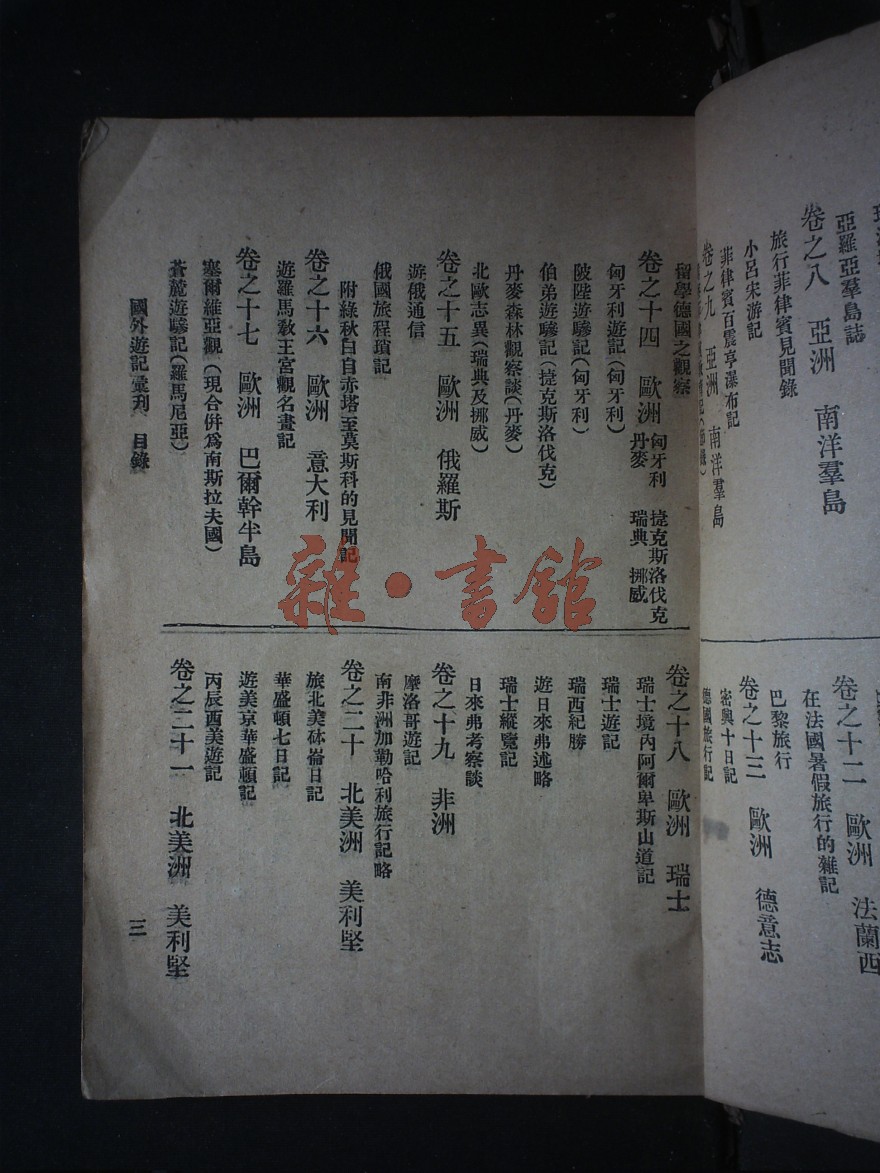 亞羅亞羣島誌
卷之八　亞洲　南洋羣島
旅行菲律賓見聞錄
小呂宋游記
菲律賓百震亭瀑布記
卷之九　亞洲　南洋羣島
卷之十二　歐洲　法蘭西
在法國暑假旅行的雜記
巴黎旅行
卷之十三　歐洲　德意志
密興十日記
德國旅行記
留學德國之觀察
卷之十四　歐洲　匈牙利　捷克斯洛伐克　丹麥　瑞典　挪威
匈牙利遊記(匈牙利)
陂陛遊驂記(匈牙利)
伯弟遊驂記(捷克斯洛伐克)
丹麥森林觀察談(丹麥)
北歐志異(瑞典及挪威)
卷之十五　歐洲　俄羅斯
遊俄通信
俄國旅程瑣記
附綠秋白自赤塔至莫斯科的見聞記
卷之十六　歐洲　意大利
遊羅馬敎王宮觀名畫記
卷之十七　歐洲　巴爾幹半島
塞爾維亞觀(現合併爲南斯拉夫國)
蒼麓遊驂記(羅馬尼亞)
卷之十八　歐洲　瑞士
瑞士境內阿爾卑斯山道記
瑞士遊記
瑞西紀勝
遊日來弗述略
瑞士縱覽記
日來弗考察談
卷之十九　非洲
摩洛哥遊記
南非洲加勒哈利旅行記略
卷之二十　北美洲　美利堅
旅北美砵崙日記
華盛頓七日記
遊美京華盛頓記
丙辰西美遊記
卷之二十一　北美洲　美利堅
國外遊記彙刋　目錄
三
雜·書館